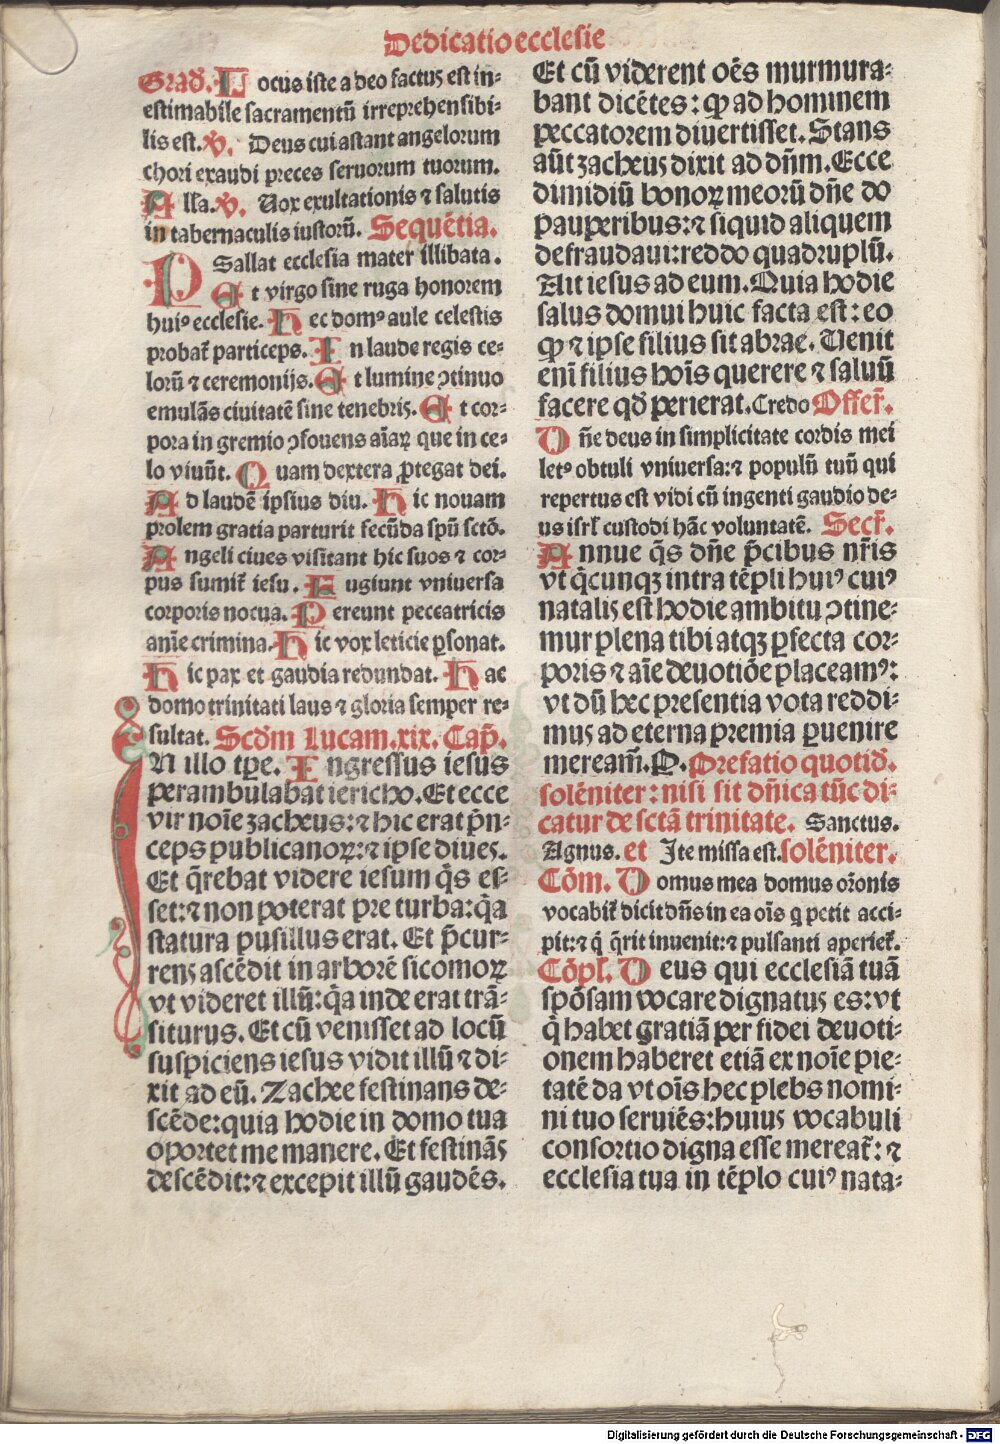 Dedicatio ecclesie
Grad̃. Locus iste a deo factus est in-
estimabile sacramentũ irreprehensibi-
lis est. ℣. Deus cui astant angelorum
chori exaudi preces seruorum tuorum.
Alla. ℣. Uox exultationis ⁊ salutis
in tabernaculis iustorũ. Sequẽtia.
PSallat ecclesia mater illibata.
Et virgo sine ruga honorem
huiꝰ ecclesie. Hec domꝰ aule celestis
probat̃ particeps. In laude regis ce-
lorũ ⁊ ceremonijs. Et lumine ꝯtinuo
emulãs ciuitatẽ sine tenebris. Et cor-
pora in gremio ꝯfouens aĩaꝝ que in ce-
lo viuũt. Quam dextera ꝓtegat dei.
Ad laudẽ ipsius diu. Hic nouam
prolem gratia parturit fecũda spũ sctõ.
Angeli ciues visitant hic suos ⁊ cor-
pus sumit̃ iesu. Fugiunt vniuersa
corporis nocua. Pereunt peccatricis
anĩe crimina. Hic vox leticie ꝑsonat.
Hic pax et gaudia redundat. Hac
domo trinitati laus ⁊ gloria semper re-
sultat. Scd̃m Lucam. xix. Cap̃.
IN illo tꝑe. Ingressus iesus
perambulabat iericho. Et ecce
vir noĩe zacheus: ⁊ hic erat p̃n-
ceps publicanoꝝ: ⁊ ipse diues.
Et q̃rebat videre iesum q̃s es-
set: ⁊ non poterat pre turba: q̃a
statura pusillus erat. Et p̃cur-
rens ascẽdit in arborẽ sicomoꝝ
vt videret illũ: q̃a inde erat trã-
siturus. Et cũ venisset ad locũ
suspiciens iesus vidit illũ ⁊ di-
xit ad eũ. Zachee festinans de-
scẽde: quia hodie in domo tua
oportet me manere. Et festinãs
descẽdit: ⁊ excepit illũ gaudẽs.
Et cũ viderent oẽs murmura-
bant dicẽtes: ꝙ ad hominem
peccatorem diuertisset. Stans
aũt zacheus dixit ad dñm. Ecce
dimidiũ bonoꝝ meorũ dñe do
pauperibus: ⁊ siquid aliquem
defraudaui: reddo quadruplũ.
Ait iesus ad eum. Quia hodie
salus domui huic facta est: eo
ꝙ ⁊ ipse filius sit abrae. Uenit
enĩ filius hoĩs querere ⁊ saluũ
facere qď perierat. Credo Offer̃.
Dñe deus in simplicitate cordis mei
letꝰ obtuli vniuersa: ⁊ populũ tuũ qui
repertus est vidi cũ ingenti gaudio de-
us isrl̃ custodi hãc voluntatẽ. Secr̃.
Annue q̃s dñe p̃cibus nr̃is
vt q̃cunqꝫ intra tẽpli huiꝰ cuiꝰ
natalis est hodie ambitu ꝯtine-
mur plena tibi atqꝫ ꝑfecta cor-
poris ⁊ aĩe deuotiõe placeamꝰ:
vt dũ hec presentia vota reddi-
mus ad eterna premia ꝑuenire
meream̃. P. Prefatio quotid̃.
solẽniter: nisi sit dñica tũc di-
catur de sctã trinitate. Sanctus.
Agnus. et Ite missa est. solẽniter.
Cõm. Domus mea domus or̃onis
vocabit̃ dicit dñs in ea oĩs q petit acci-
pit: ⁊ q̃ q̃rit inuenit: ⁊ pulsanti aperiet̃.
Cõpl̃. Deus qui ecclesiã tuã
spõsam vocare dignatus es: vt
q̃ habet gratiã per fidei deuoti-
onem haberet etiã ex noĩe pie-
tatẽ da vt oĩs hec plebs nomi-
ni tuo seruiẽs: huius vocabuli
consortio digna esse mereat̃: ⁊
ecclesia tua in tẽplo cuiꝰ nata-
Digitalisierung gefördert durch die Deutsche Forschungsgemeinschaft - DFG